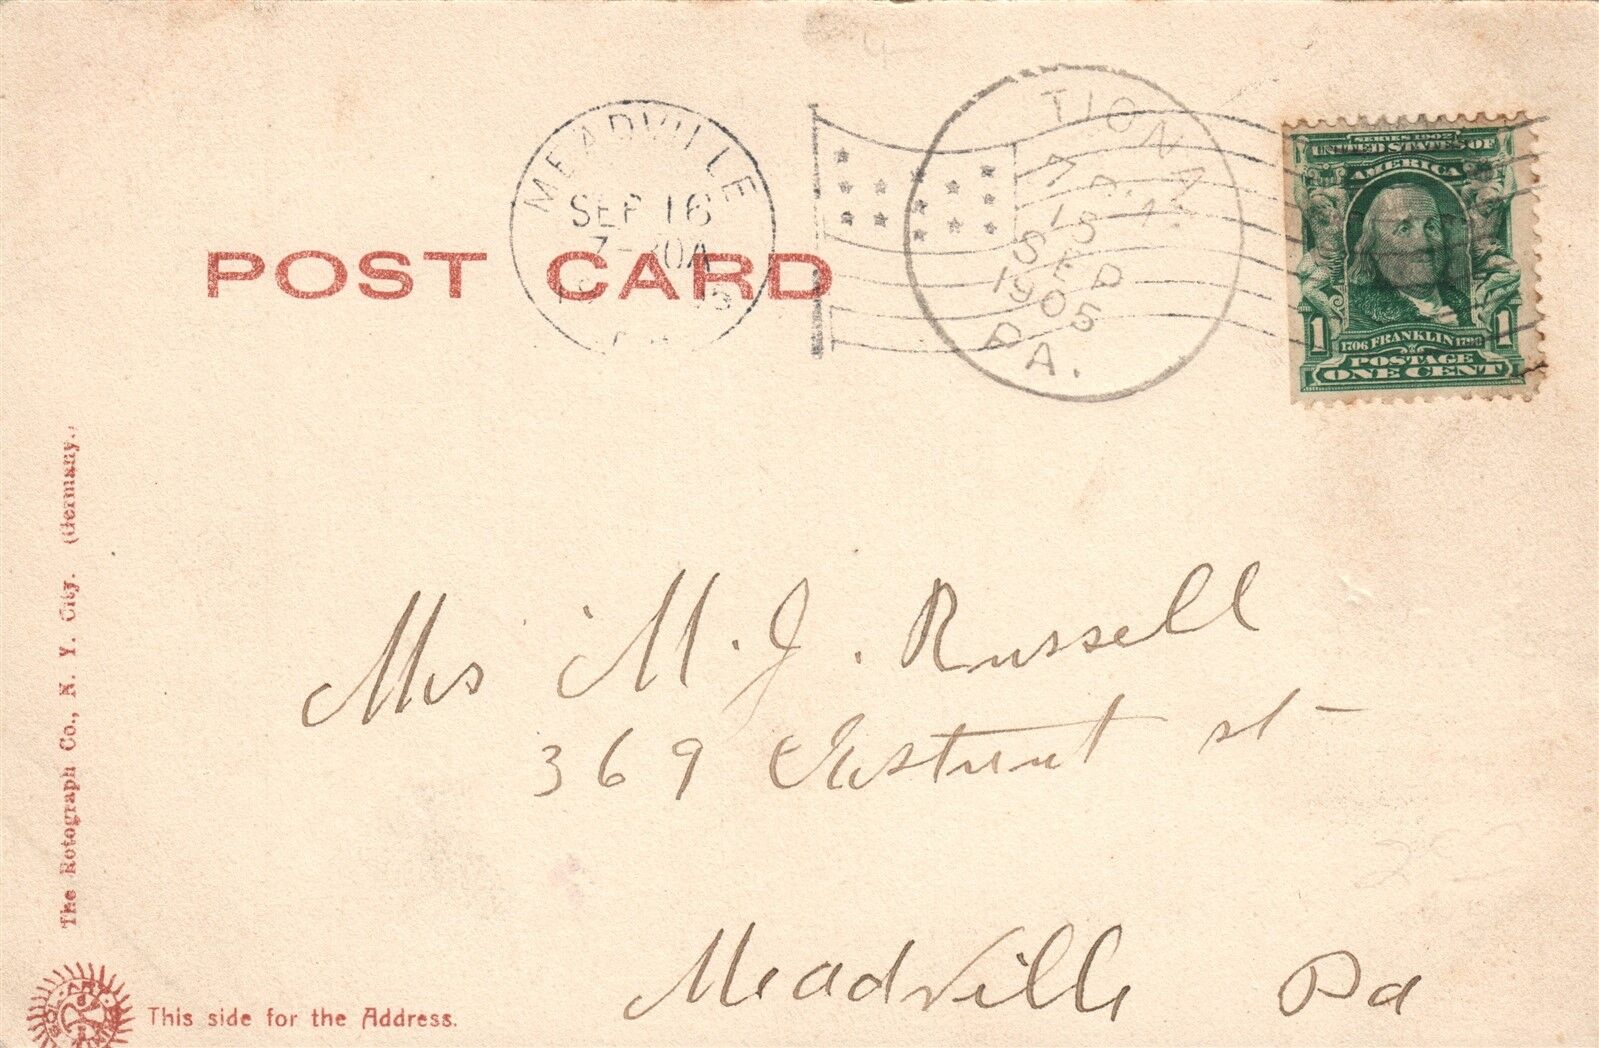 MEADVILLE
SEP 16
7-30A
TIONA
A.M.
15
SEP
1905
PA.
SERIES 1902
UNITED STATES OF
AMERICA
1 1
1706 FRANKLIN 1790
POSTAGE
ONE CENT
POST CARD
The Rotograph Co., N. Y. City. (Germany.)
Mrs M. J. Russell
369 st
Meadville Pa
SOL ART
This side for the Address.